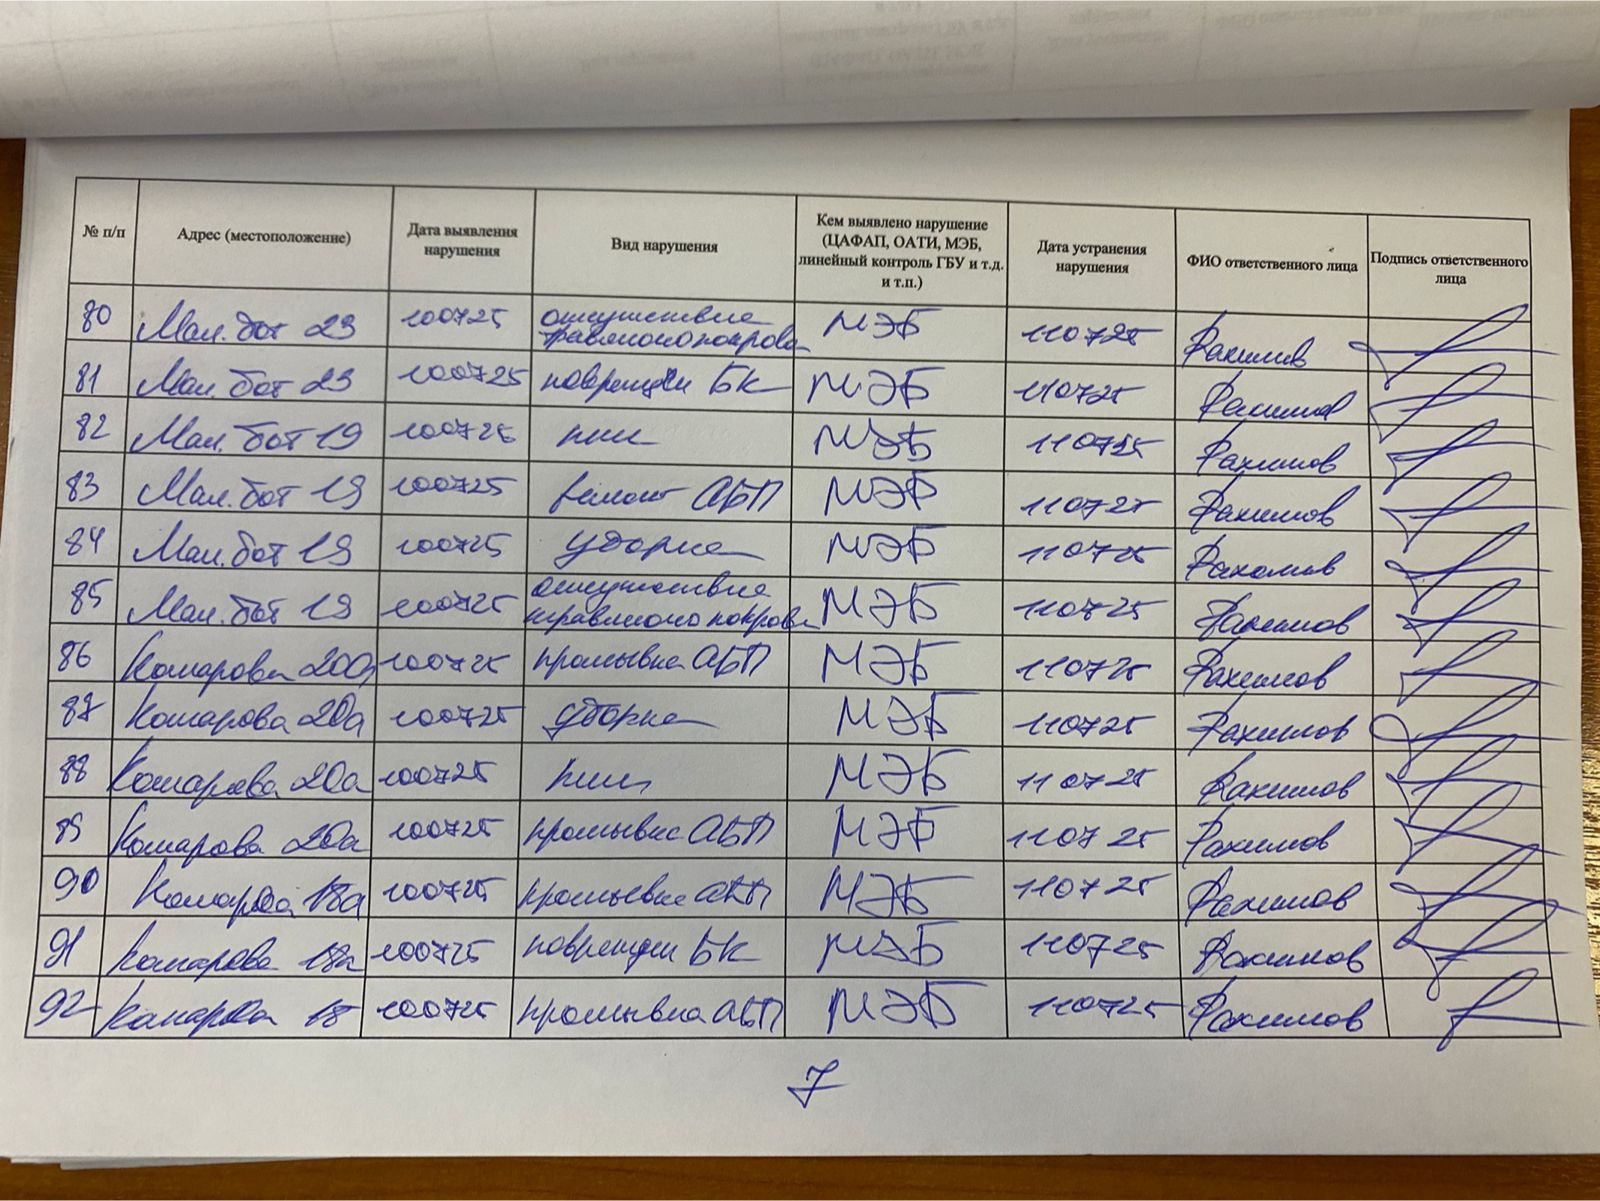 № п/п Адрес (местоположение) Дата выявления нарушения Вид нарушения Кем выявлено нарушение (ЦАФАП, ОАТИ, МЭБ, линейный контроль ГБУ и т.д. и т.п.) Дата устранения нарушения ФИО ответственного лица Подпись ответственного лица
80 Мал. бот 23 100725 отсутствие травяного покрова МЭБ 110725 Рахимов
81 Мал. бот 23 100725 БК МЭБ 110725 Рахимов
82 Мал. бот 19 100725 МЭБ 110725 Рахимов
83 Мал. бот 19 100725 ремонт АБП МЭБ 110725 Рахимов
84 Мал. бот 19 100725 уборка МЭБ 110725 Рахимов
85 Мал. бот 19 100725 отсутствие травяного покрова МЭБ 110725 Рахимов
86 Комарова 20а 100725 промывка АБП МЭБ 110725 Рахимов
87 Комарова 20а 100725 уборка МЭБ 110725 Рахимов
88 Комарова 20а 100725 МЭБ 110725 Рахимов
89 Комарова 20а 100725 промывка АБП МЭБ 110725 Рахимов
90 Комарова 18а 100725 промывка АБП МЭБ 110725 Рахимов
91 Комарова 18а 100725 БК МЭБ 110725 Рахимов
92 Комарова 18 100725 промывка АБП МЭБ 110725 Рахимов
7